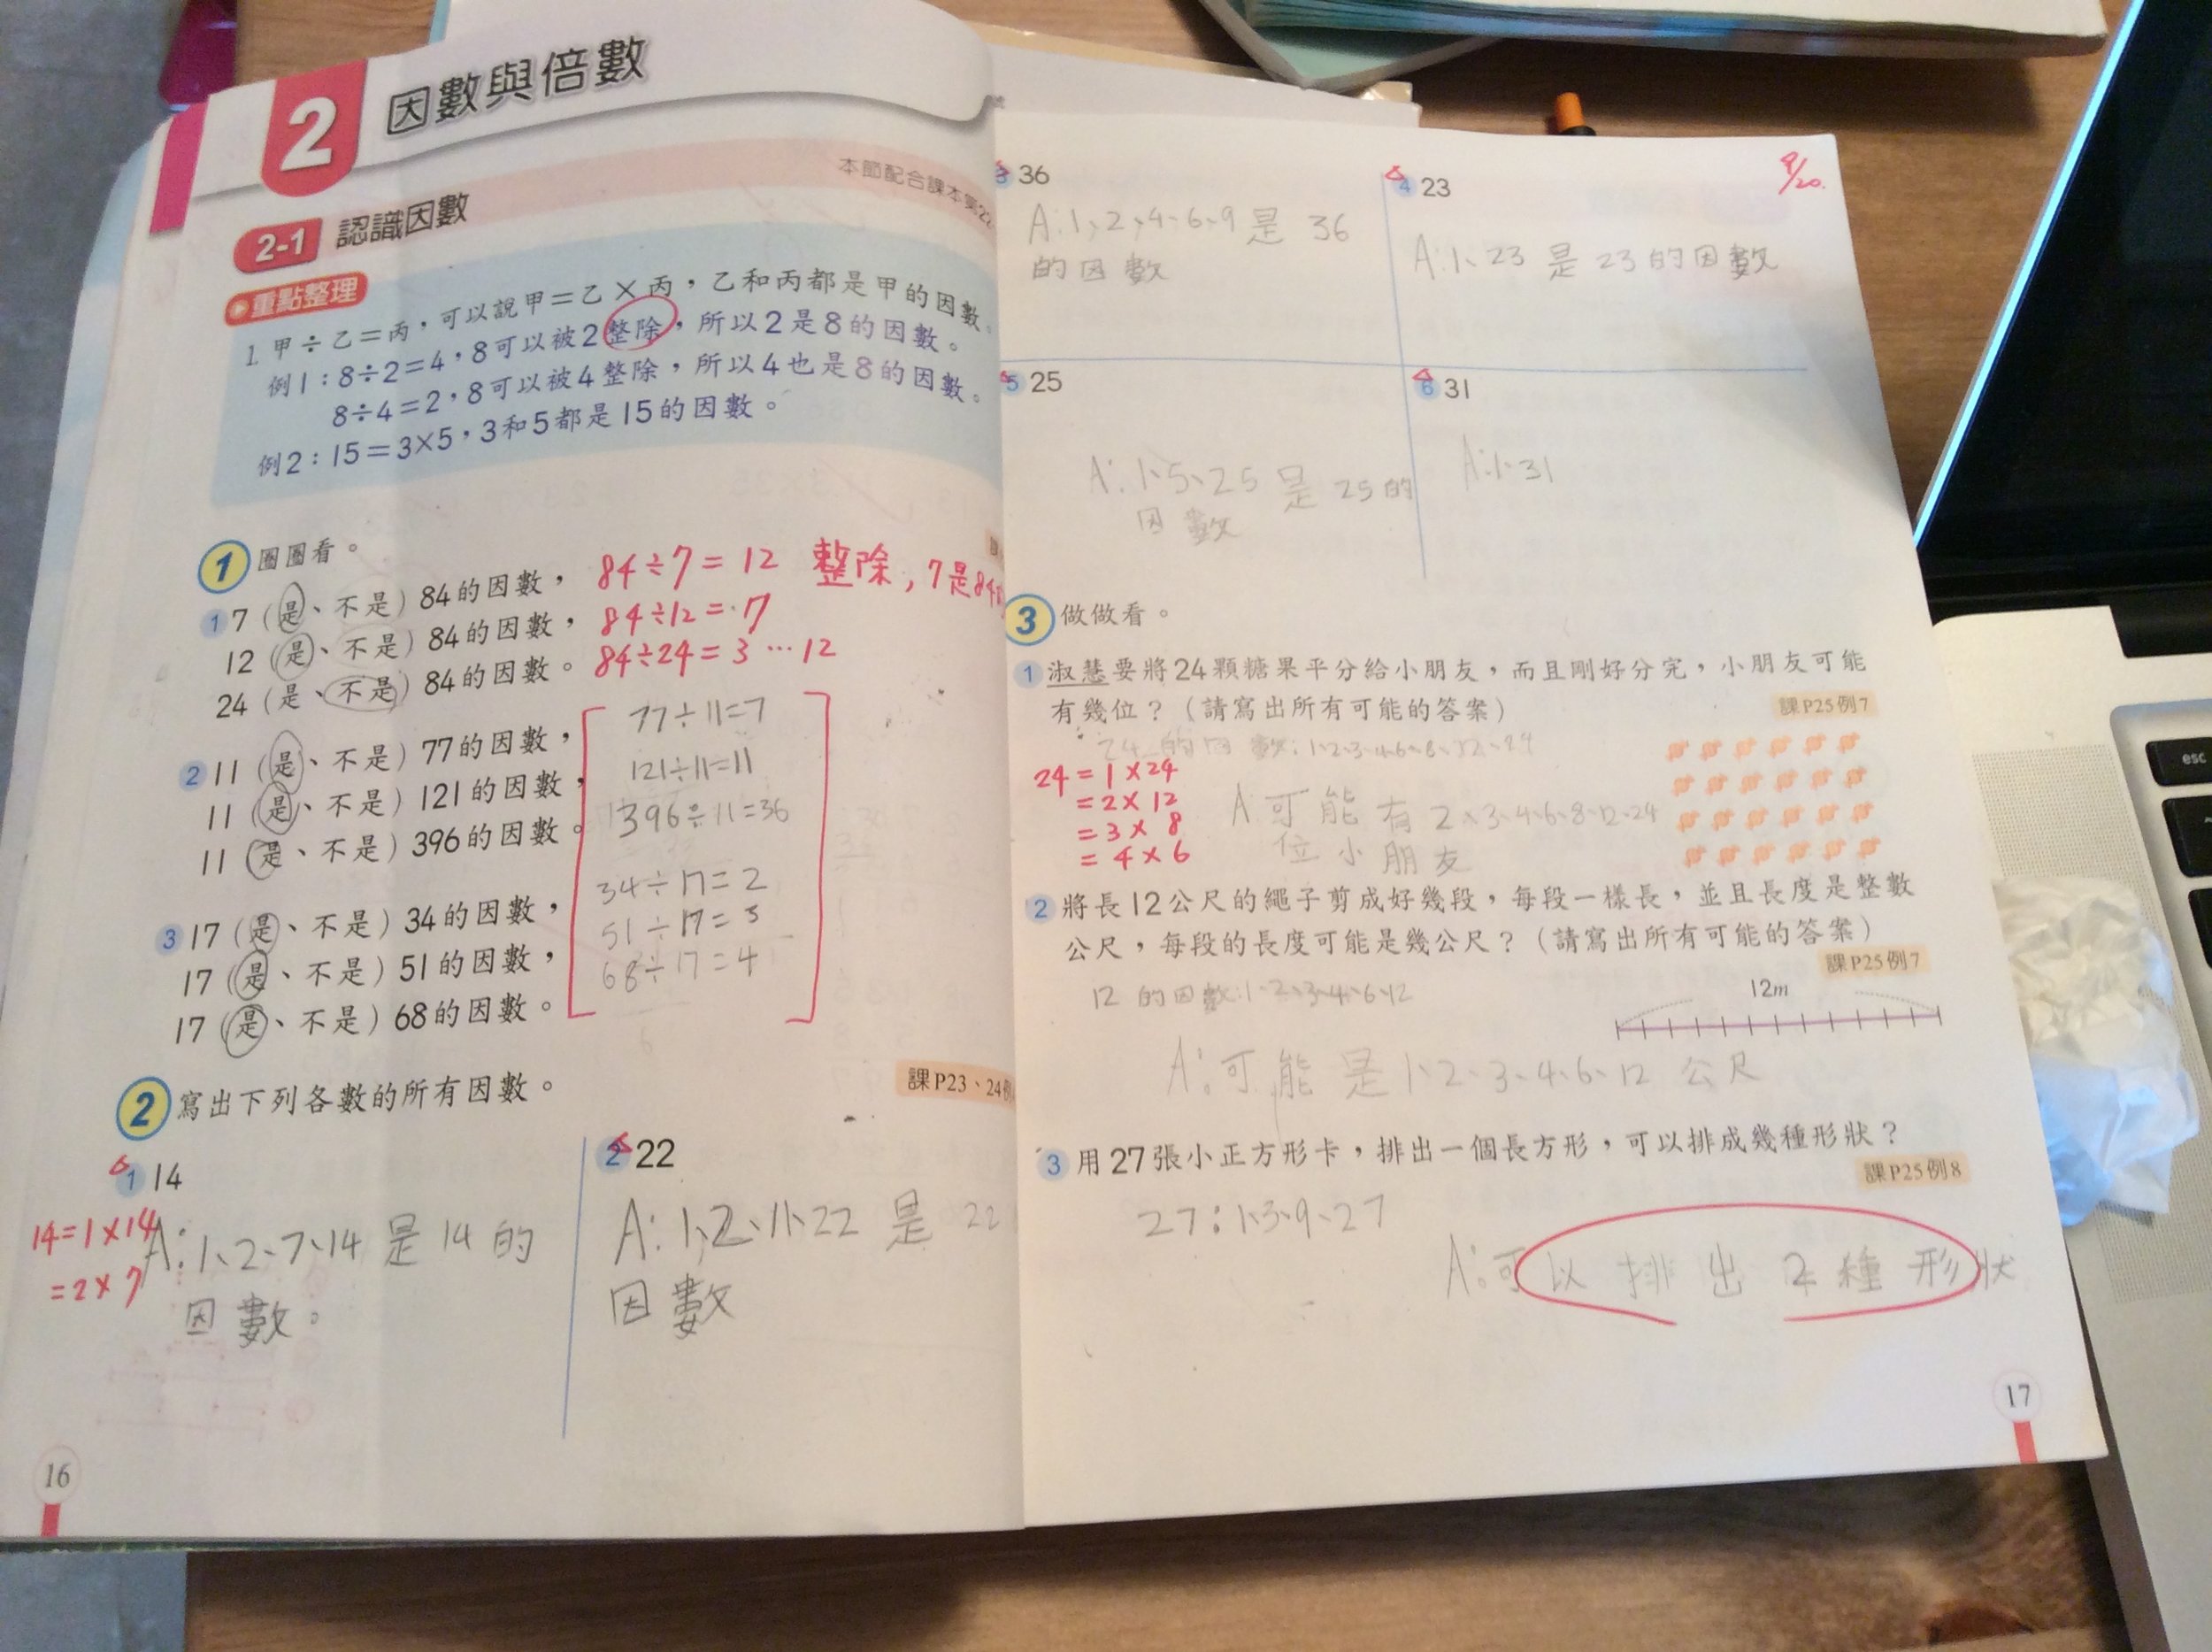 2 因數與倍數
本節配合課本第22
2-1 認識因數
重點整理
1. 甲÷乙=丙,可以說甲=乙×丙,乙和丙都是甲的因數。
例1:8÷2=4,8可以被2整除,所以2是8的因數。
8÷4=2,8可以被4整除,所以4也是8的因數。
例2:15=3×5,3和5都是15的因數。
1 圈圈看。
1 7(是、不是)84的因數,
84÷7=12 整除,7是84
12(是、不是)84的因數,
84÷12=7
24(是、不是)84的因數。
84÷24=3…12
2 11(是、不是)77的因數,
77÷11=7
11(是、不是)121的因數,
121÷11=11
11(是、不是)396的因數。
396÷11=36
3 17(是、不是)34的因數,
34÷17=2
17(是、不是)51的因數,
51÷17=3
17(是、不是)68的因數。
68÷17=4
2 寫出下列各數的所有因數。
課P23、24例
1 14
14=1×14
=2×7
A:1、2、7、14是14的
因數。
2 22
A:1、2、11、22是22
因數
16
9/20.
3 36
A:1、2、4、6、9是36
的因數
4 23
A:1、23是23的因數
5 25
A:1、5、25是25的
因數
6 31
A:1、31
3 做做看。
1 淑慧要將24顆糖果平分給小朋友,而且剛好分完,小朋友可能
有幾位?(請寫出所有可能的答案)
課P25例7
24的因數:1、2、3、4、6、8、12、24
24=1×24
=2×12
=3×8
=4×6
A可能有2、3、4、6、8、12、24
位小朋友
2 將長12公尺的繩子剪成好幾段,每段一樣長,並且長度是整數
公尺,每段的長度可能是幾公尺?(請寫出所有可能的答案)
課P25例7
12的因數:1、2、3、4、6、12
12m
A:可能是1、2、3、4、6、12公尺
3 用27張小正方形卡,排出一個長方形,可以排成幾種形狀?
課P25例8
27:1、3、9、27
A:可以排出2種形狀
17
esc